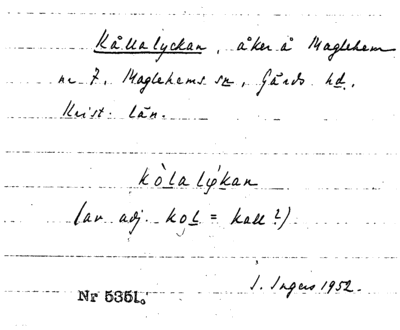 Kållalyckan, åker å Maglehem
nr 7, Maglehems sn, Gärds hd.
Krist. län.
kòlalýkan
(av adj. kol = kall?)
I. Ingers 1952.
Nr 5351.